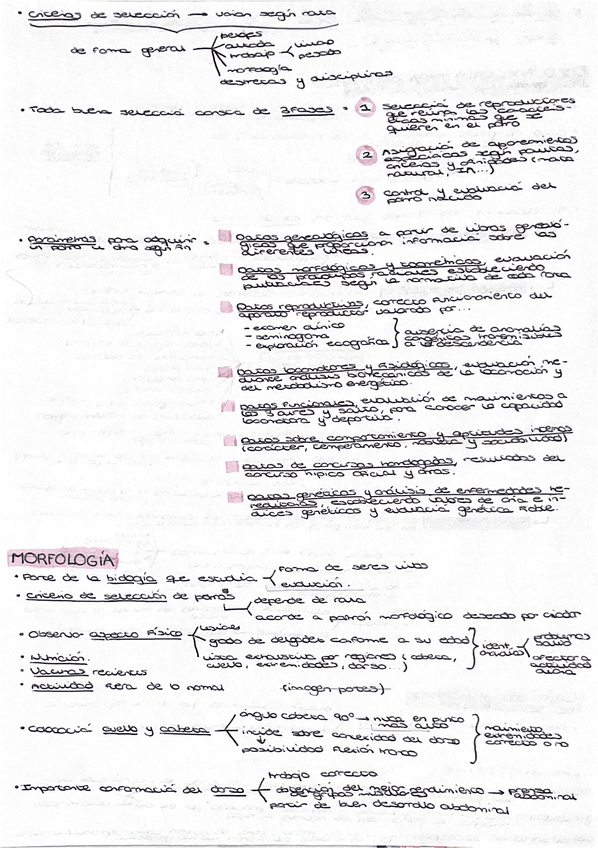 • Criterios de selección → varían según raza
de forma general
paseos
arrocada
trabajo
liviano
pesado
morfología
destrezas y disciplinas
• Toda buena selección consta de 3 fases =
1 Selección de reproductores
que reúna las caracterís-
ticas mínimas que se
quieren en el potro
2 Asignación de apareamientos
específicos según pautas,
criterios y afinidades (monta
natural, IA...)
3 Control y evaluación del
potro nacido
• Parámetros para adquirir =
un potro u otro según
Datos genealógicos a partir de libros genealó-
gicos que proporcionan información sobre las
diferentes líneas.
Datos morfológicos y biométricos, evaluación
de los prototipos raciales estableciendo
puntuaciones según la normativa de cada raza
Datos reproductivos, correcto funcionamiento del
aparato reproductor valorado por...
- examen clínico
- seminograma
- exploración ecográfica
ausencia de anomalías
congénitas transmisibles
a la descendencia
Datos locomotores y fisiológicos, evaluación me-
diante análisis biomecánicos de la locomoción y
del metabolismo energético.
Datos funcionales, evaluación de movimientos a
los 3 aires y salto, para conocer la capacidad
locomotora y deportiva.
Datos sobre comportamiento y aptitudes internas
(carácter, temperamento, nobleza y sociabilidad)
Datos de concursos homologados, resultados del
concurso hípico oficial y otros.
Datos genéticos y análisis de enfermedades he-
reditarias, estableciendo valores de cría e ín-
dices genéticos y evaluación genética fiable.
MORFOLOGÍA
• Parte de la biología que estudia
forma de seres vivos
evolución.
• Criterio de selección de potros
depende de raza
acorde a patrón morfológico deseado por criador
• Observar aspecto físico
lesiones
grado de delgadez conforme a su edad
vista exhaustiva por regiones (cabeza,
cuello, extremidades, dorso...)
ident.
problemas
salud
afectar a
actividad
diaria
• Nutrición.
• Vacunas recientes
• Actividad fuera de lo normal
(imagen potes)
• Colocación cuello y cabeza
ángulo cabeza 90° → nuca en punto
más alto
incide sobre conexidad del dorso
posibilidad flexión tronco
movimiento
extremidades
correcto o no
• Importante conformación del dorso
trabajo correcto
obtención del mejor rendimiento → prensa
abdominal
partir de buen desarrollo abdominal